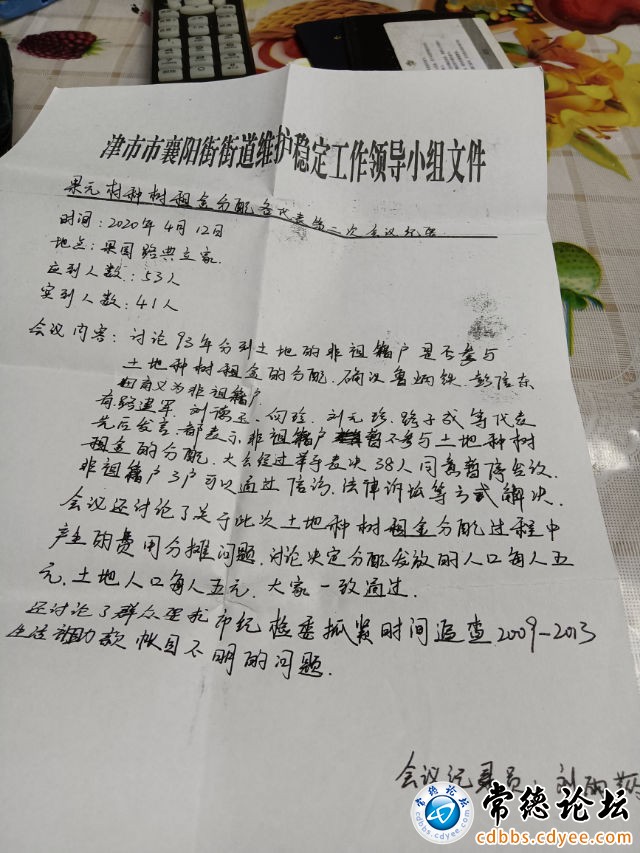 津市市襄阳街街道维护稳定工作领导小组文件
果元村种树租金分配各代表第二次会议纪录
时间：2020年4月12日
地点：果园 路典立家.
应到人数：53人
实到人数：41人
会议内容：讨论93年分到土地的非祖籍户是否参与
土地种树租金的分配.确议鲁炳铁.彭信东
自定义为非祖籍户
有路建军.刘德玉.向珍.刘元珍.路子成等代表
先后发言.都表示非祖籍户暂不参与土地种树
租金的分配.大会经过举手表决38人同意暂停发放.
非祖籍户3户可以通过信访.法律诉讼等方式解决.
会议还讨论了关于此次土地种树租金分配过程中
产生的费用分摊问题.讨论决定分配发放的人口每人五
元.土地人口每人五元.大家一致通过.
还讨论了群众要求市纪检委抓紧时间追查2009—2013
生活补助款帐目不明的问题.
会议记录员：刘
常德论坛
cdbbs.cdyee.com